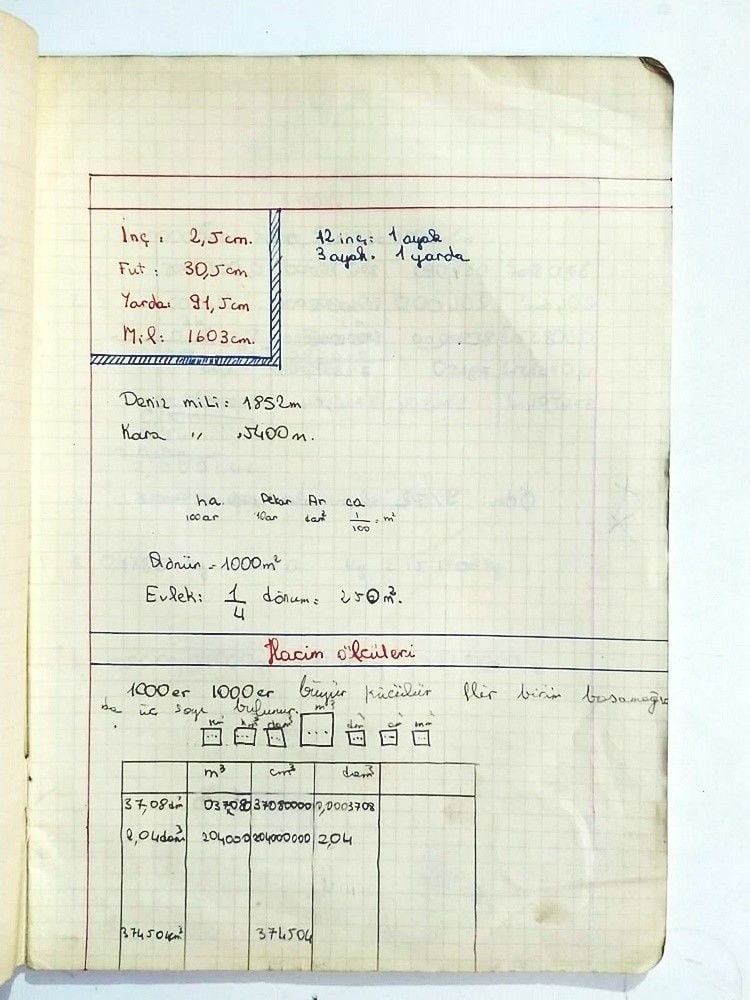 İnç: 2,5cm.
Fut: 30,5cm
Yarda: 91,5cm
Mil: 1603cm.
12 inç: 1 ayak
3 ayak. 1 yarda
Deniz mili: 1852m
Kara " 5400m.
ha. Dekar Ar ca
100ar 10ar dam² 1/100 = m²
= 1000m²
Evlek: 1/4 dönüm= 250m².
Hacim ölçüleri
1000er 1000er büyür küçülür Her birim basamağın
da üç sayı bulunur.
km³ hm³ dam³ m³ dm³ cm³ mm³
m³ cm³ dam³
37,08dm³ 37080000 0,0003708
2,04dam³ 204000 204000000 2,04
374504cm³ 374504